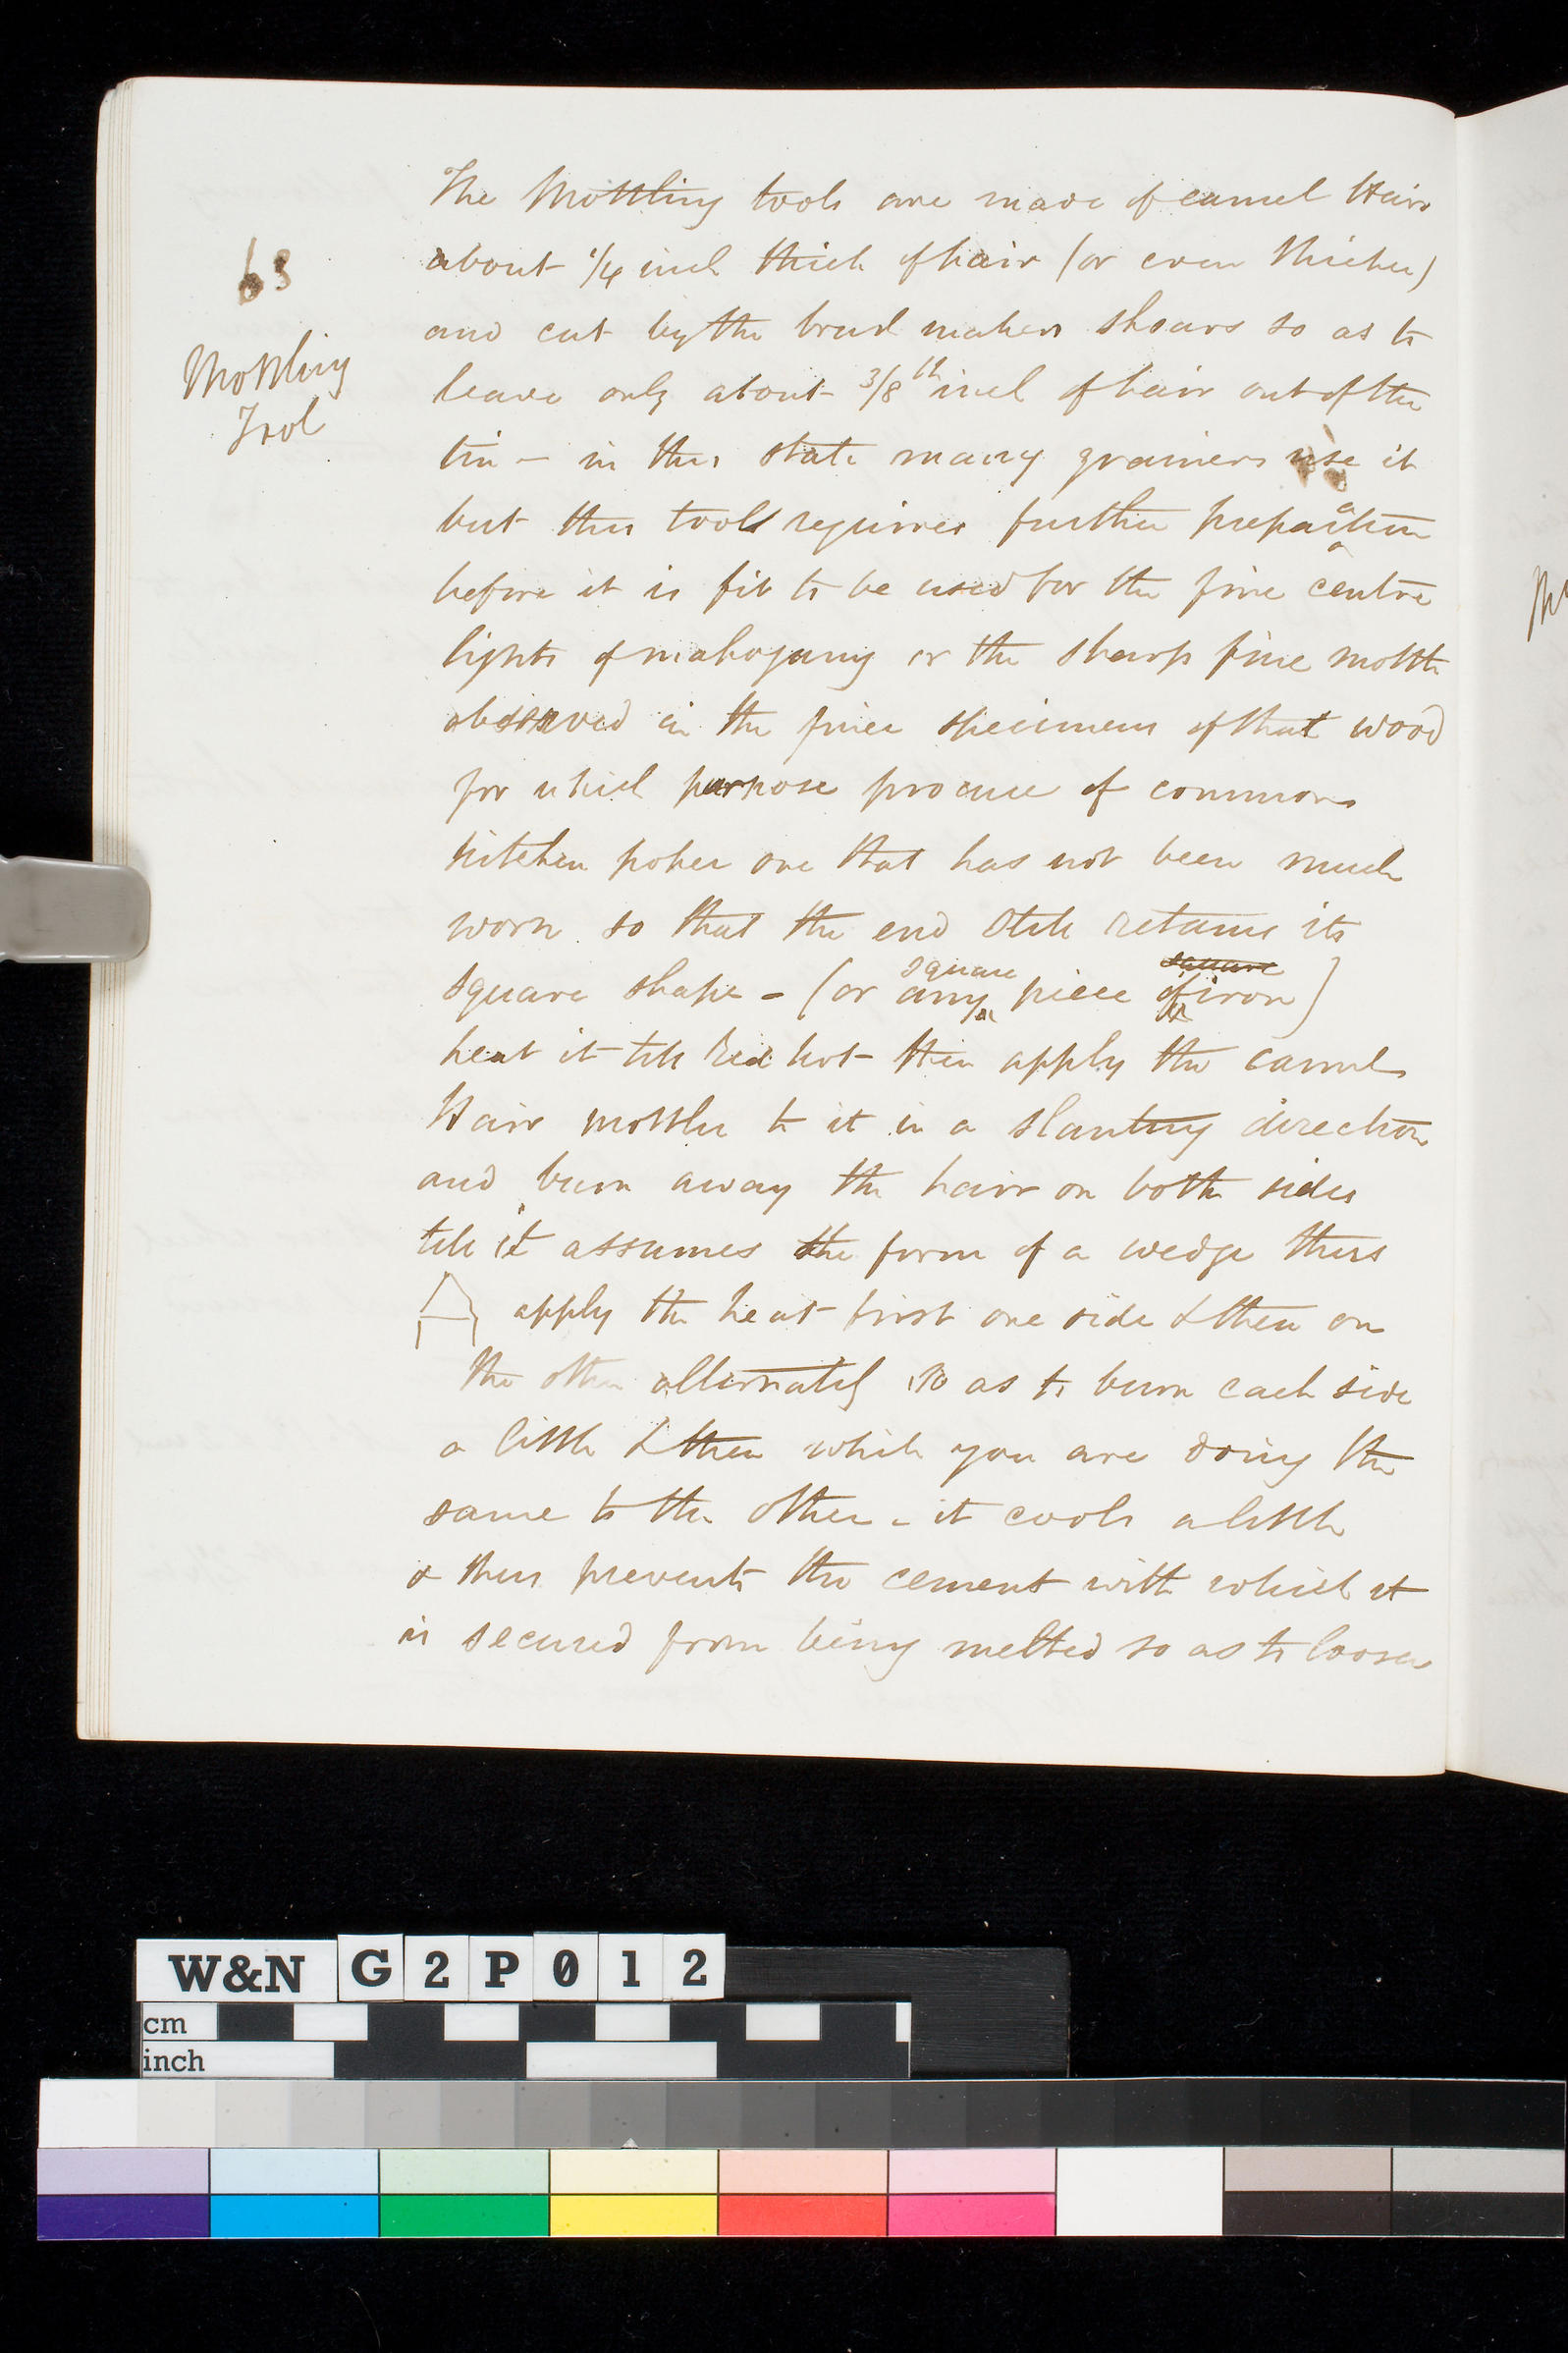 63
Mottling
Tool
The Mottling tools are made of camel Hair
about 1/4 inch thick of hair (or even thicker)
and cut by the brush makers shears so as to
leave only about 3/8th inch of hair out of the
tin – in this state many grainers use it
but this tool requires further preparation
before it is fit to be used for the fine centre
lights of mahogany or the sharp fine mottle
observed in the finer specimens of that wood
for which purpose procure of common
kitchen poker one that has not been much
worn so that the end still retains its
square shape – (or any square piece of square iron)
heat it till Red hot – then apply the camel
Hair mottler to it in a slanting direction
and burn away the hair on both sides
till it assumes the form of a wedge thus
apply the heat first one side & then on
the other alternately so as to burn each side
a little & then while you are doing the
same to the other – it cools a little
& thus prevents the cement with which it
is secured from being melted so as to loosen
W&N G2P012
cm
inch